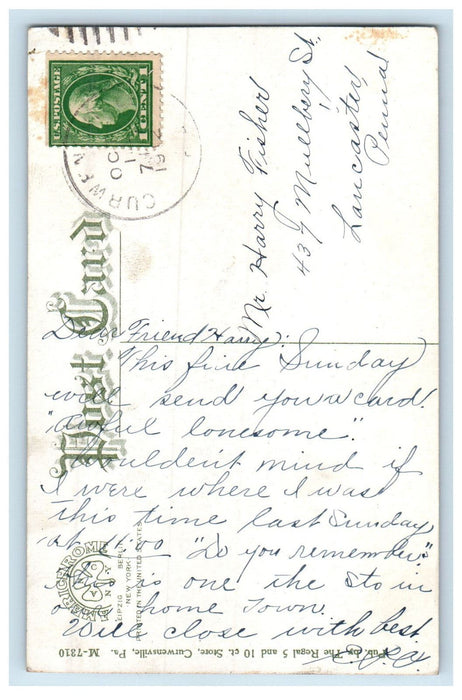 U.S. POSTAGE
1 CENT 1
CURWEN
OC
7
19
Post Card
Mr. Harry Fisher
439 Mullbery St.
Lancaster,
Penna
Dear Friend Harry:
This fine Sunday
will send you a card.
"Awful lonesome".
Wouldent mind if
I were where I was
this time last Sunday
at 11:00 "Do you remember"
This is one the Sto in
home Town.
Will close with best
AMERICHROME
LEIPZIG BERLIN
NEW YORK
PRINTED IN THE UNITED STATES
Pub. by The Regal 5 and 10 ct. Store, Curwensville, Pa. M-7310